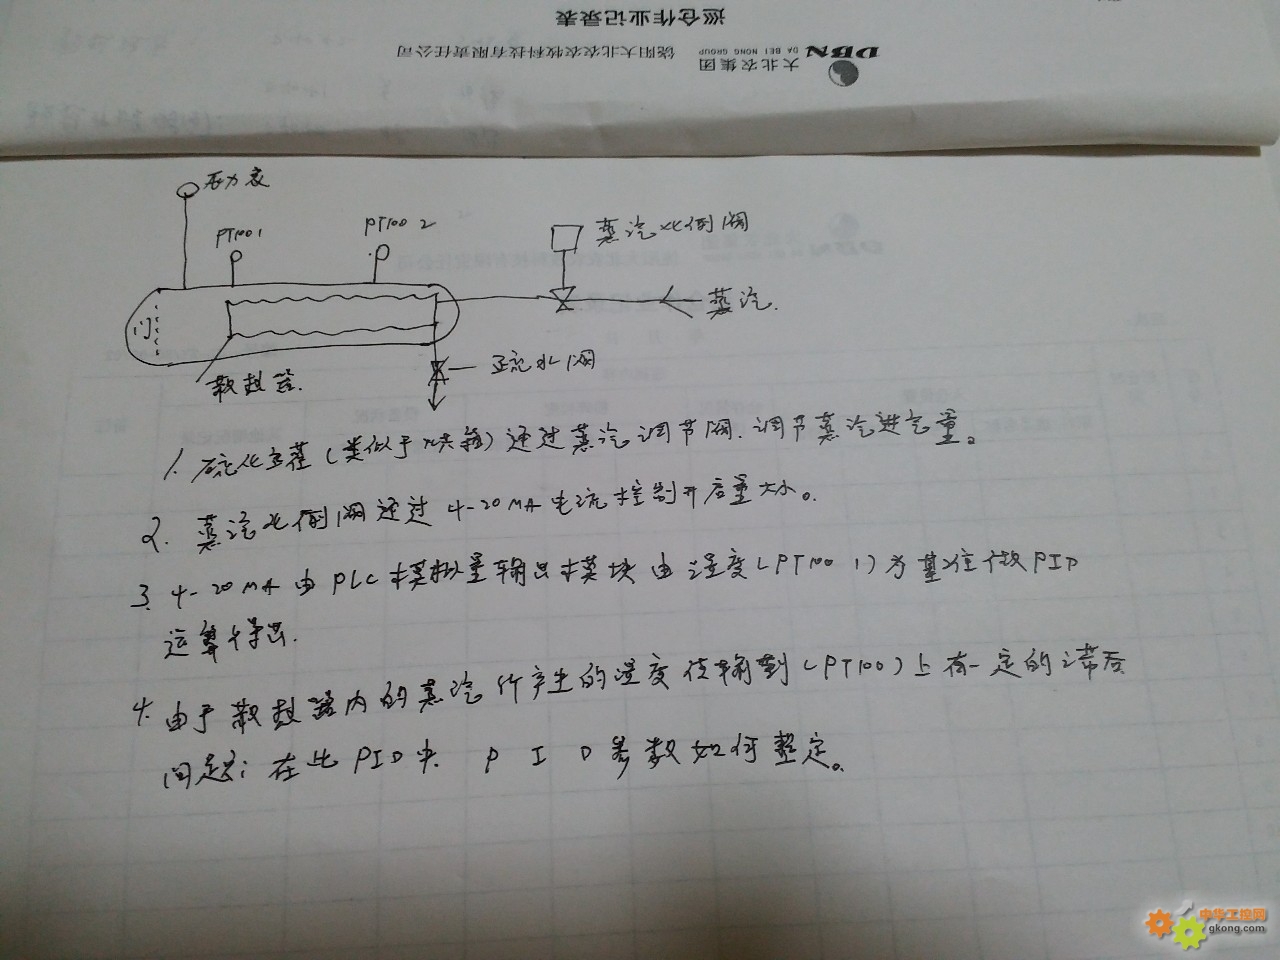 巡仓作业记录表
饶阳大北农农牧科技有限责任公司
大北农集团
DA BEI NONG GROUP
DBN
压力表
PT100 1
PT100 2
蒸汽比例阀
蒸汽.
门
疏水阀
散热器.
1. 硫化罐(类似于烘箱)通过蒸汽调节阀.调节蒸汽进气量。
2. 蒸汽比例阀通过4-20MA电流控制开启量大小。
3. 4-20MA由PLC模拟量输出模块由温度(PT100 1)为基准做PID
运算得出.
4. 由于散热器内的蒸汽所产生的温度传输到(PT100)上有一定的滞后
问题:在此PID中. P I D参数如何整定。
中华工控网
gkong.com